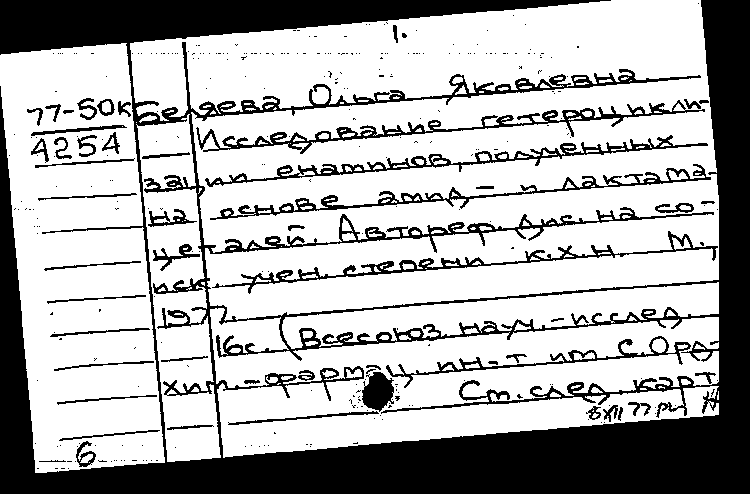 1.
77-50к
4254
Беляева, Ольга Яковлевна
Исследование гетероцикли-
зации енаминов, полученных
на основе амид- и лактама-
цеталей. Автореф. дис. на со-
иск. учен. степени к.х.н. М.,
1977.
16с. (Всесоюз. науч.-исслед.
хим.-фармац. ин-т им. С. Орд-
См. след. карт.
6